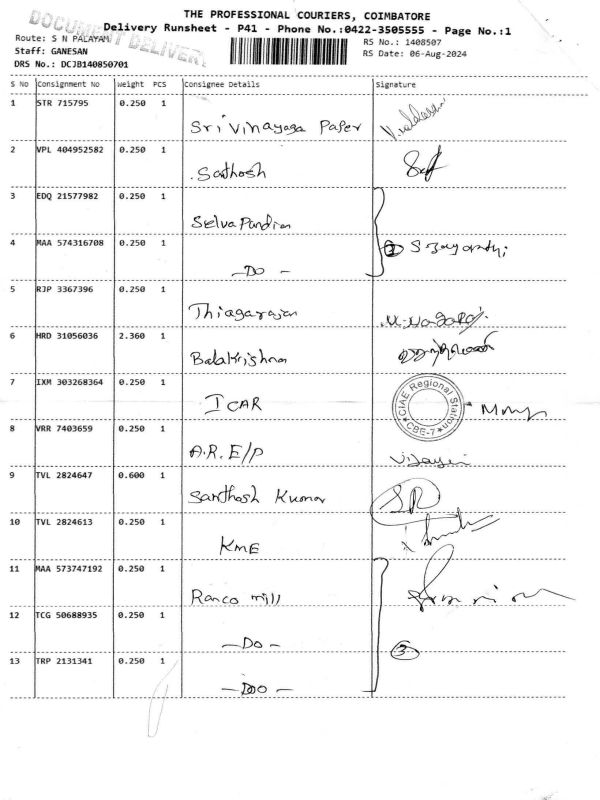 THE PROFESSIONAL COURIERS, COIMBATORE
DOCUMENT DELIVERY
Delivery Runsheet - P41 - Phone No.:0422-3505555 - Page No.:1
Route: S N PALAYAM
RS No.: 1408507
Staff: GANESAN
RS Date: 06-Aug-2024
DRS No.: DCJB140850701
S No Consignment No Weight PCS Consignee Details Signature
1 STR 715795 0.250 1
Sri Vinayaga Paper
2 VPL 404952582 0.250 1
Santhosh
3 EDQ 21577982 0.250 1
Selva Pandian
4 MAA 574316708 0.250 1
-Do-
2
5 RJP 3367396 0.250 1
Thiagarajan
6 HRD 31056036 2.360 1
Balakrishna
7 IXM 303268364 0.250 1
ICAR
CIAE Regional Station
*CBE-7*
8 VRR 7403659 0.250 1
A.R. E/P
9 TVL 2824647 0.600 1
Santhosh Kumar
10 TVL 2824613 0.250 1
KME
11 MAA 573747192 0.250 1
Ranco mill
12 TCG 50688935 0.250 1
-Do-
3
13 TRP 2131341 0.250 1
-Do-